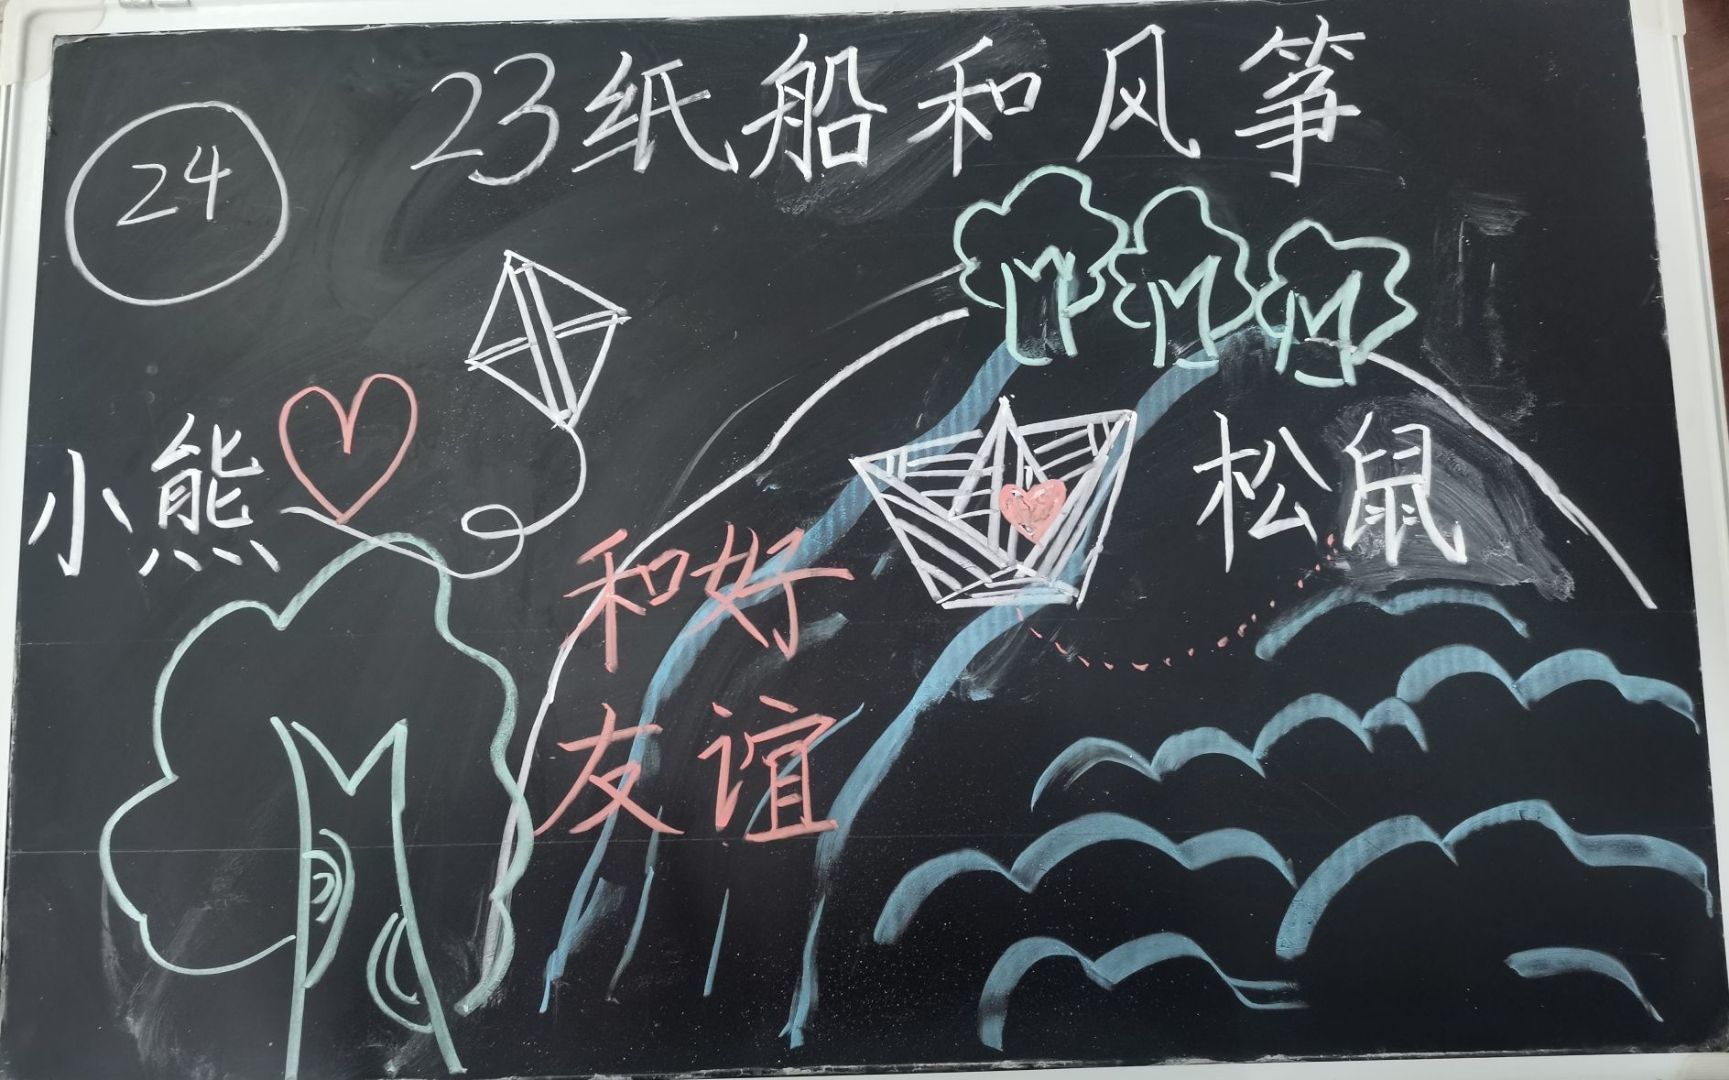 23纸船和风筝
24
小熊
松鼠
和好
友谊